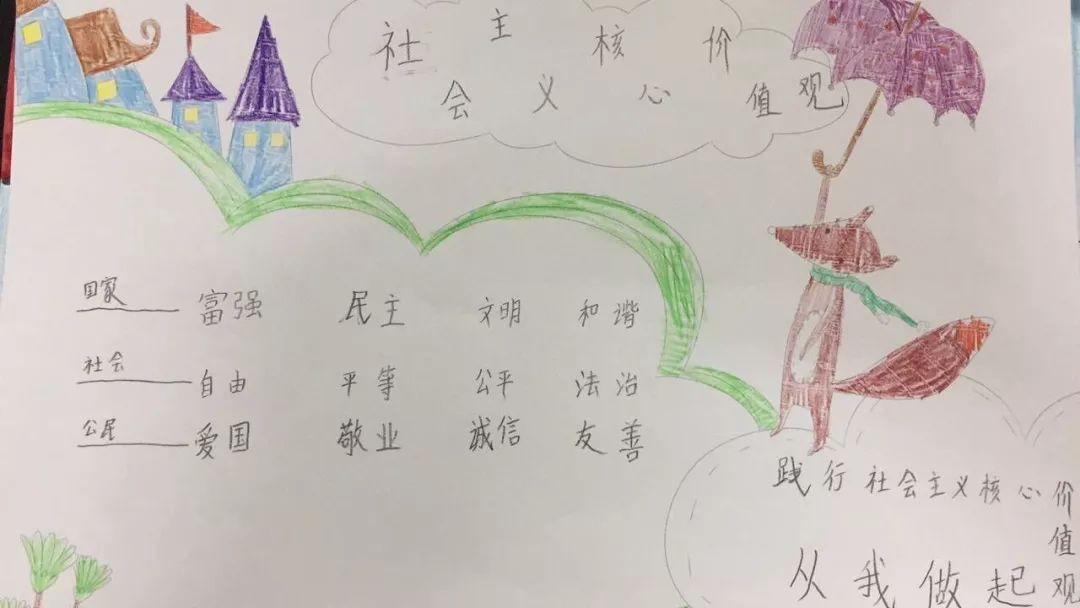 社会主义核心价值观
国家 富强 民主 文明 和谐
社会 自由 平等 公平 法治
公民 爱国 敬业 诚信 友善
践行社会主义核心价值观
从我做起